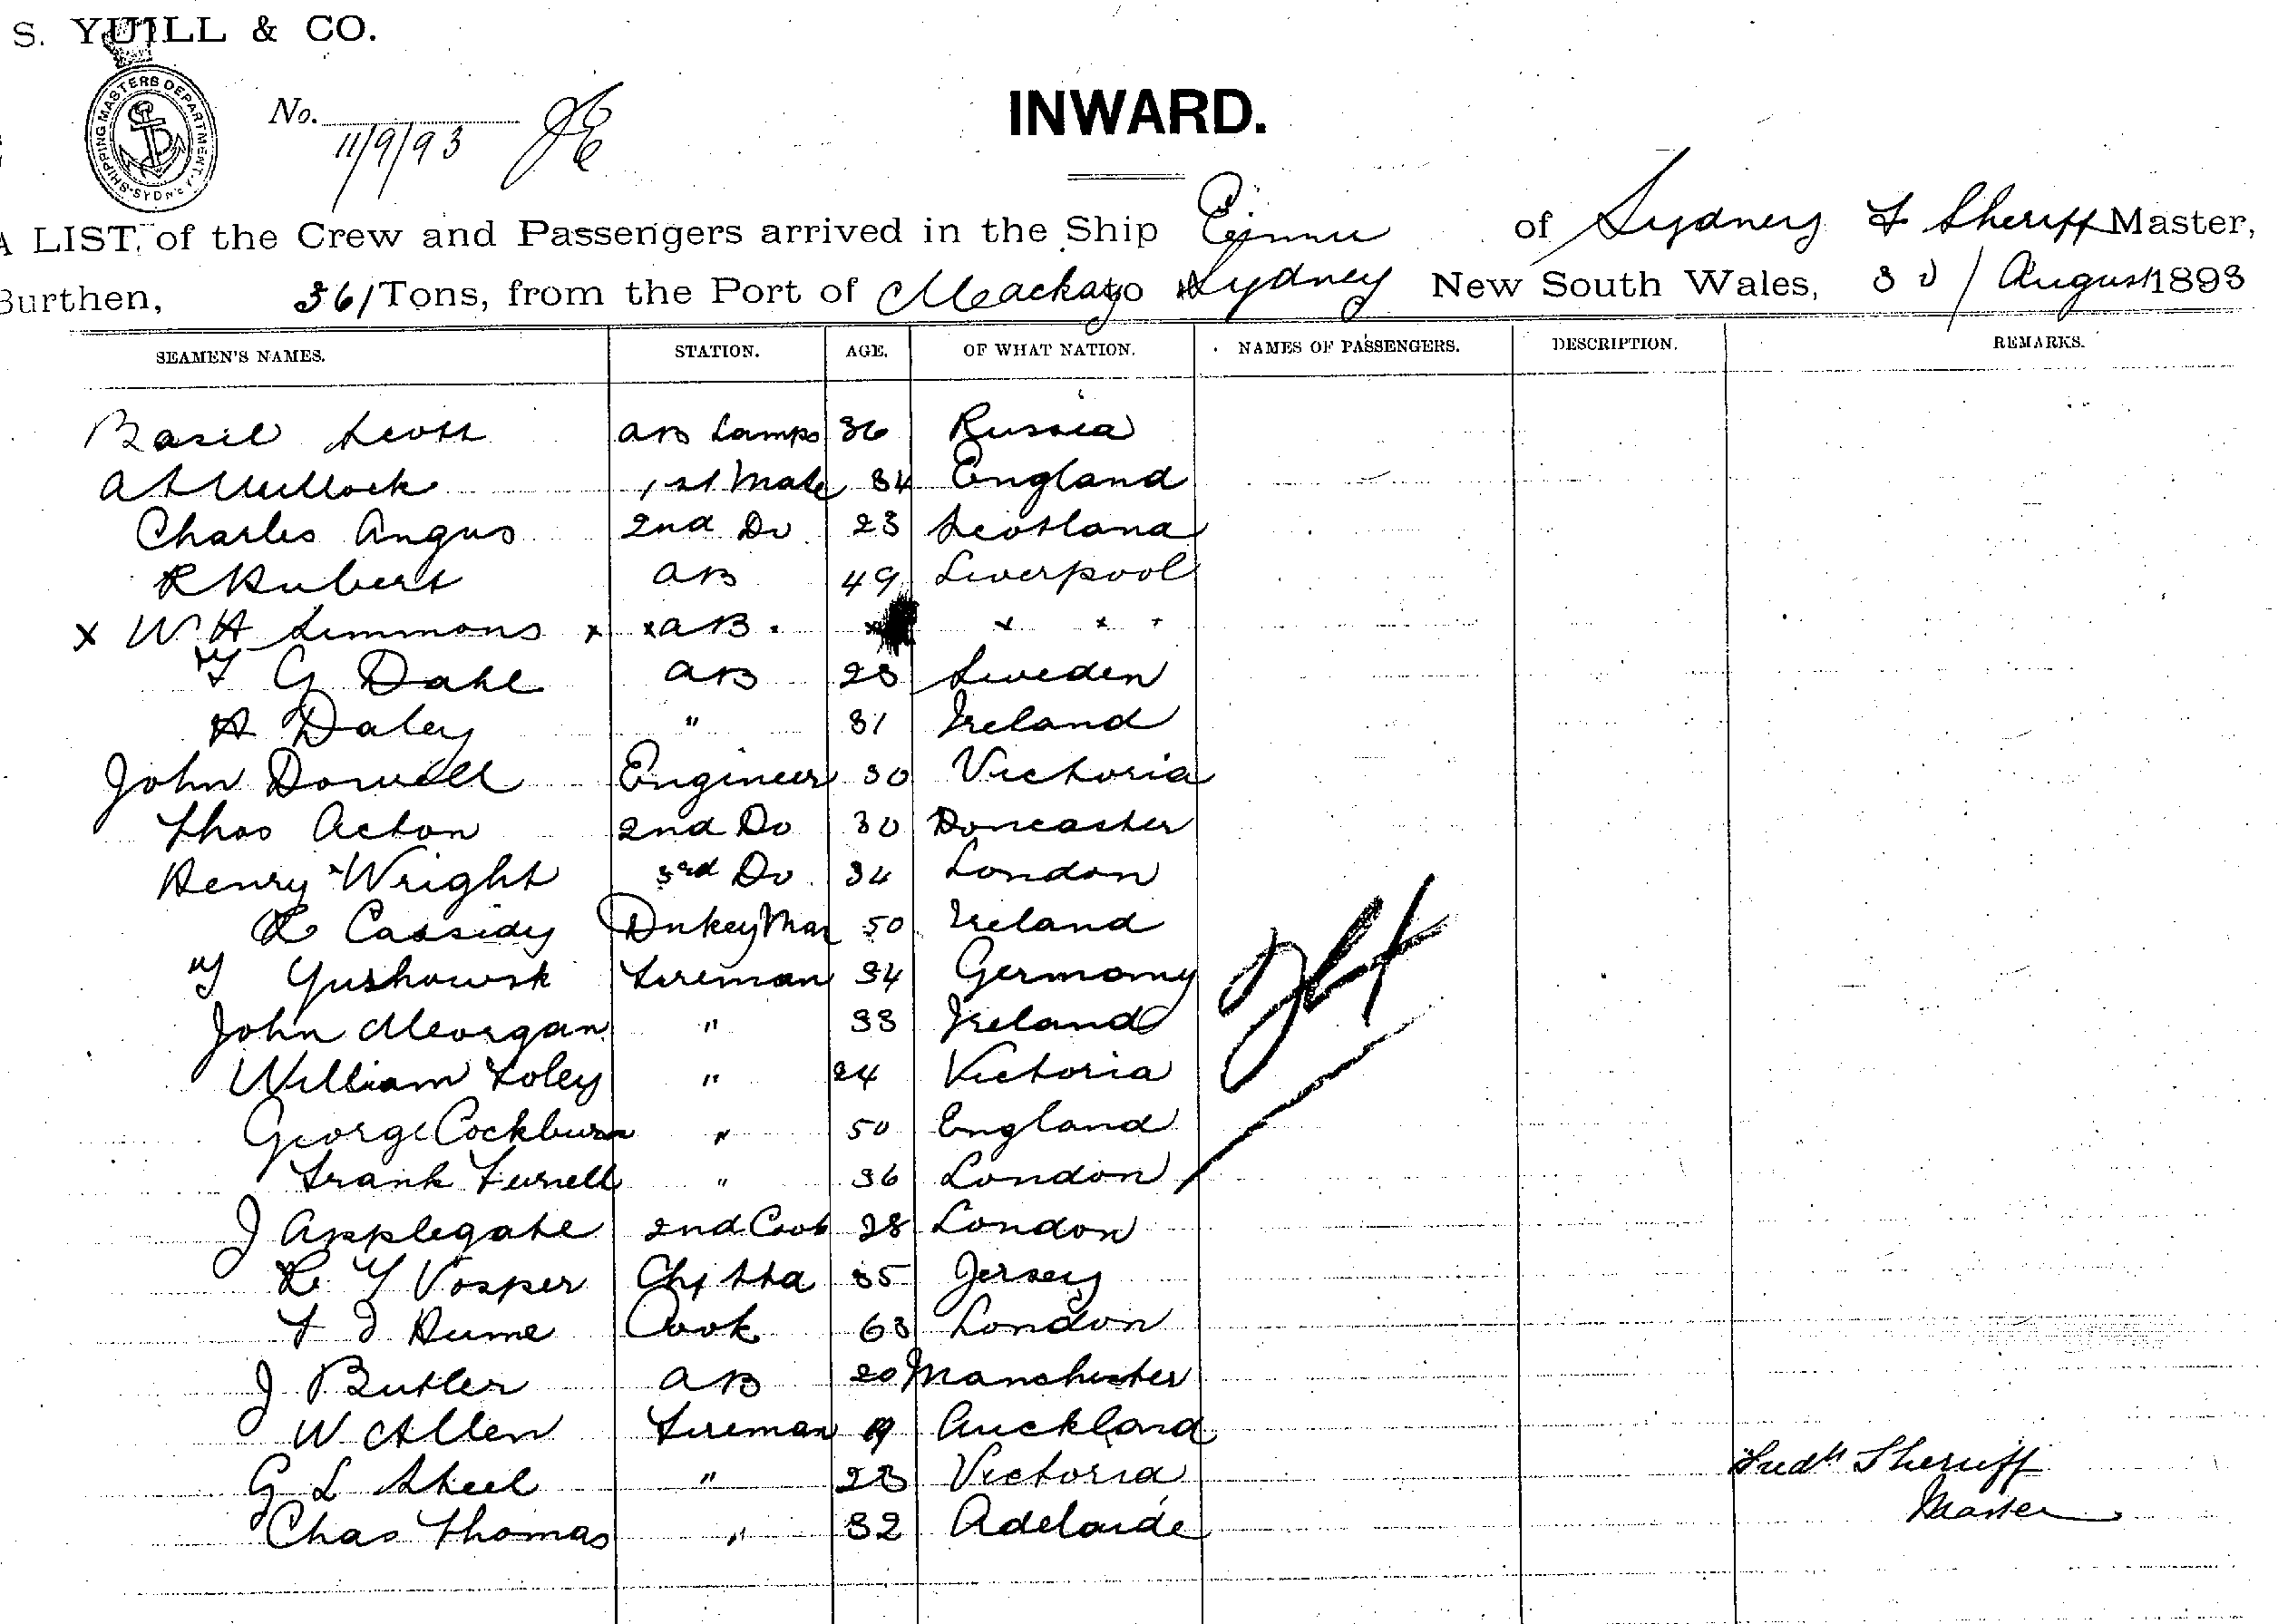 S. YUILL & CO.
SHIPPING MASTERS DEPARTMENT. SYDNEY
No.
11/9/93 JE
INWARD.
A LIST, of the Crew and Passengers arrived in the Ship of Sydney F Sheriff Master,
Burthen, 361 Tons, from the Port of Mackay to Sydney New South Wales, 30 / August 1893
SEAMEN'S NAMES. STATION. AGE. OF WHAT NATION. NAMES OF PASSENGERS. DESCRIPTION. REMARKS.
Basil Scott AB Lamps 36 Russia
A S Mullock 1st Mate 34 England
Charles Angus 2nd Do 23 Scotland
R Hubert AB 49 Liverpool
x W H Simmons x x AB. x x x x
T G Dahl AB 23 Sweden
H Daley " 31 Ireland
John Dowell Engineer 30 Victoria
Thos Acton 2nd Do 30 Doncaster
Henry Wright 3rd Do 34 London
Cassidy Dnkey Man 50 Ireland
Y Gushowsk Fireman 34 Germany
John Morgan " 33 Ireland
William Foley " 24 Victoria
George Cockburn " 50 England
Frank Furnell " 36 London
J Applegate 2nd Cook 28 London
R Y Vosper Chf Std 35 Jersey
F J Hume Cook 63 London
J Butler AB 20 Manchester
W Allen Fireman 19 Auckland
G L Steel " 23 Victoria
Chas Thomas " 32 Adelaide
Fredk Sheriff
Master